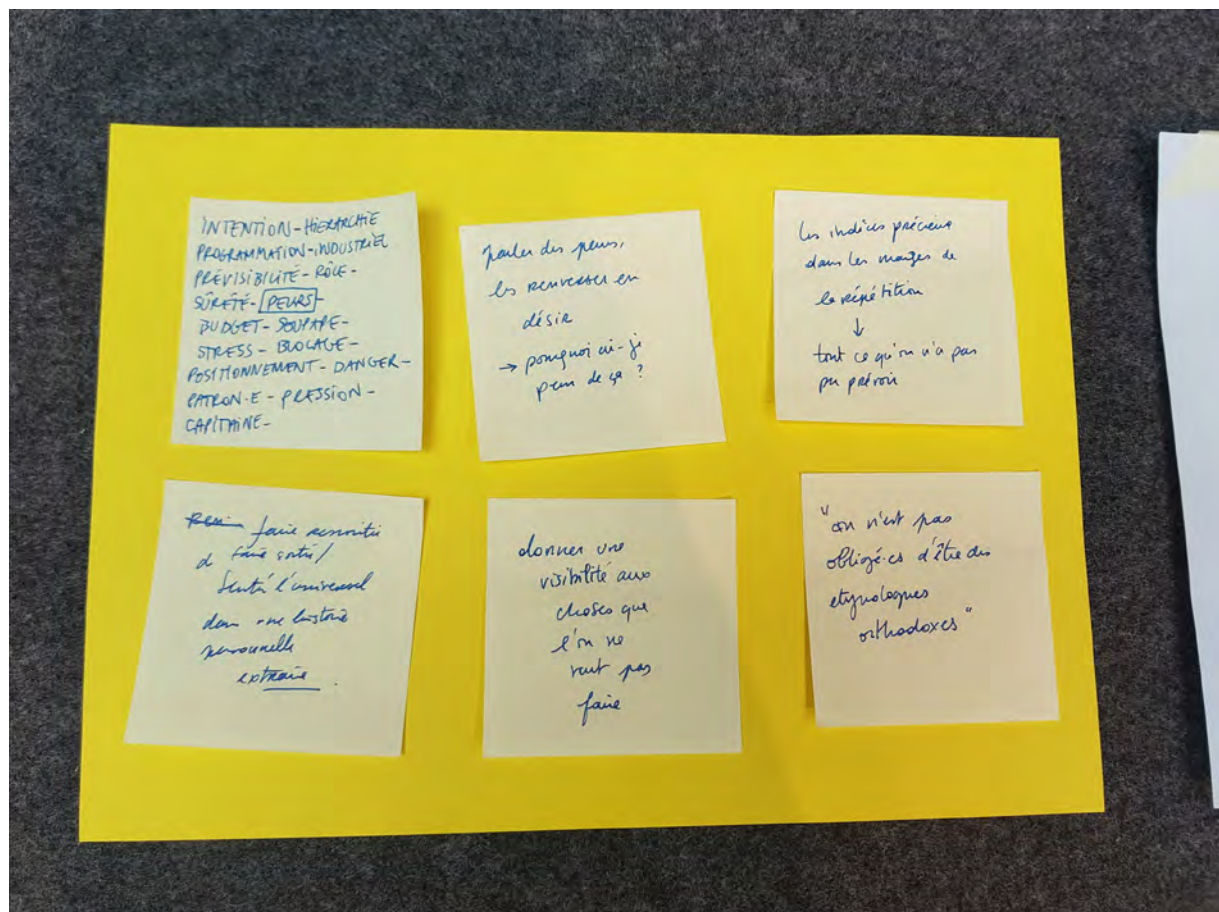 INTENTION - HIERARCHIE
PROGRAMMATION - INDUSTRIEL
PRÉVISIBILITÉ - RÔLE -
SÛRETÉ - PEURS -
BUDGET - SOUPAPE -
STRESS - BLOCAGE -
POSITIONNEMENT - DANGER -
PATRON·E - PRESSION -
CAPITAINE -
parler des peurs,
les renverser en
désir
→ pourquoi ai-je
peur de ça ?
les indices précieux
dans les marges de
la répétition
↓
tout ce qu'on n'a pas
pu prévoir
faire ressortir
faire sortir /
sentir l'universel
dans une histoire
personnelle
extraire.
donner une
visibilité aux
choses que
l'on ne
veut pas
faire
"on n'est pas
obligé·es d'être des
etymologues
orthodoxes"